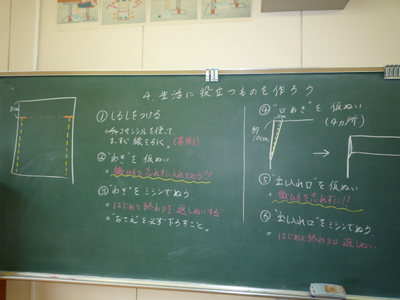 4. 生活に役立つものを作ろう
① しるしをつける
○チャコペンシルを使って
まっすぐ線を引く。(裏側)
② "わき"を仮ぬい
③ "わき"をミシンでぬう
○はじめと終わりを返しぬいする
○"おさえ"を必ず下ろすこと。
④ "口あき"を仮ぬい
(4カ所)
約
10cm
⑤ "出し入れ口"を仮ぬい
⑥ "出し入れ口"をミシンでぬう
○はじめと終わりは返しぬい